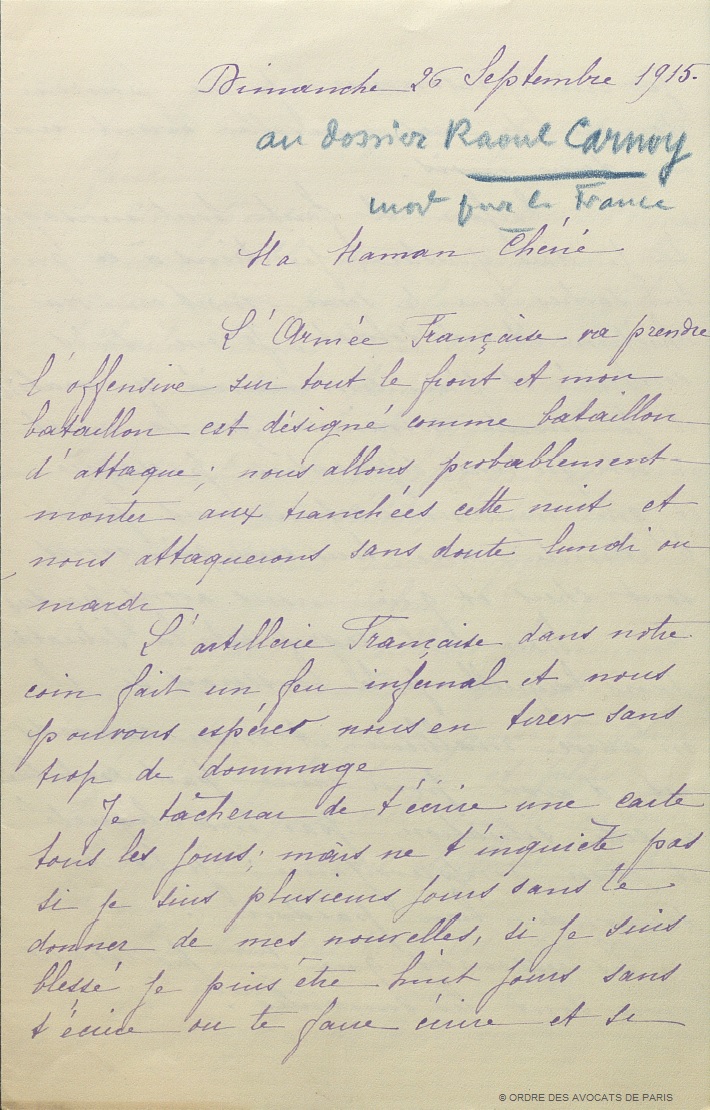 Dimanche 26 Septembre 1915.
au dossier Raoul Carnoy
mort pour la France
Ma Maman Chérie
L'Armée Française va prendre
l'offensive sur tout le front et mon
bataillon est désigné comme bataillon
d'attaque; nous allons probablement
monter aux tranchées cette nuit et
nous attaquerons sans doute lundi ou
mardi
L'artillerie Française dans notre
coin fait un feu infernal et nous
pouvons espérer nous en tirer sans
trop de dommage
Je tâcherai de t'écrire une carte
tous les jours; mais ne t'inquiète pas
si je suis plusieurs jours sans te
donner de mes nouvelles, si je suis
blessé je puis être huit jours sans
t'écrire ou te faire écrire et si
© ORDRE DES AVOCATS DE PARIS